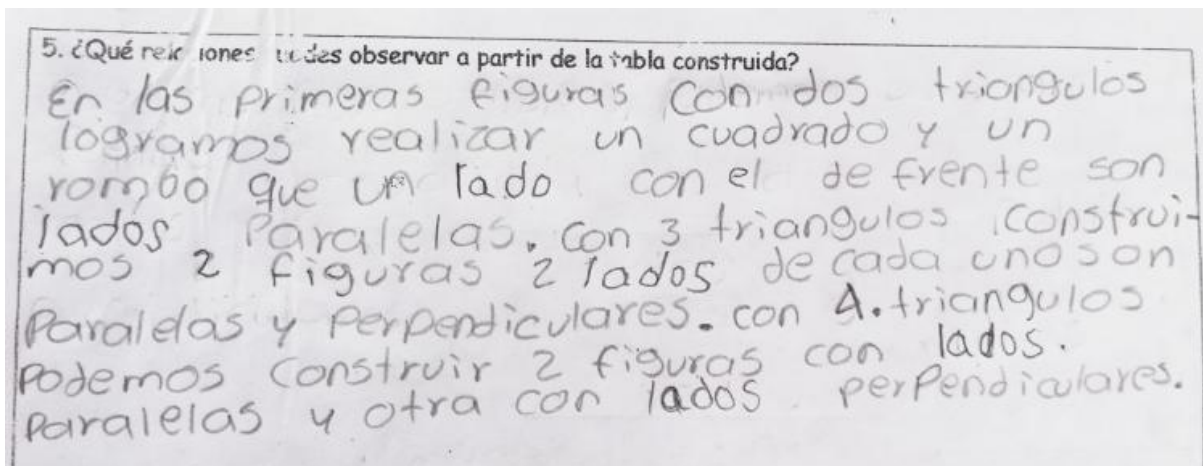 5. ¿Qué relaciones puedes observar a partir de la tabla construida?
En las primeras figuras con dos triangulos
logramos realizar un cuadrado y un
rombo que un lado con el de frente son
lados Paralelas. con 3 triangulos construi-
mos 2 figuras 2 lados de cada uno son
Paralelas y Perpendiculares. con 4. triangulos
Podemos construir 2 figuras con lados.
Paralelas y otra con lados perpendiculares.